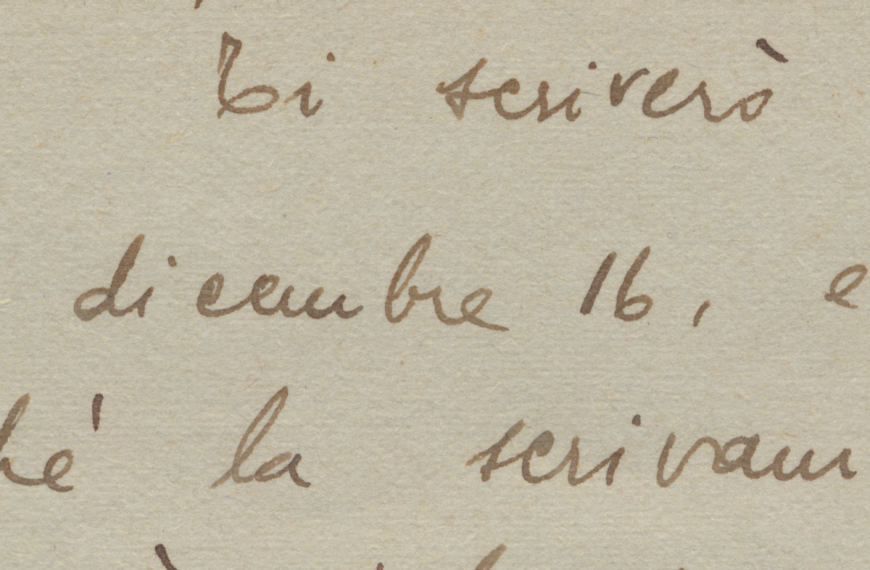 Ti scriverò
dicembre 16, e
hé la scrivam